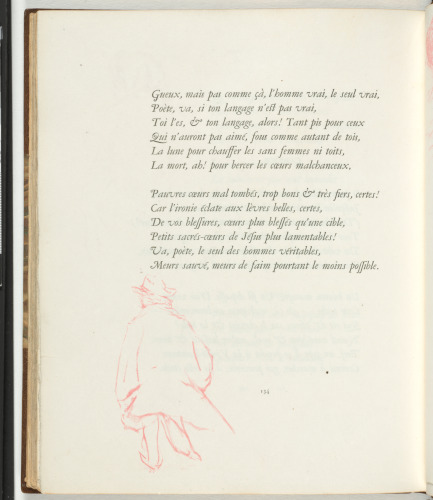 Gueux, mais pas comme çà, l'homme vrai, le seul vrai,
Poète, va, si ton langage n'est pas vrai,
Toi l'es, & ton langage, alors! Tant pis pour ceux
Qui n'auront pas aimé, fous comme autant de tois,
La lune pour chauffer les sans femmes ni toits,
La mort, ah! pour bercer les cœurs malchanceux.
Pauvres cœurs mal tombés, trop bons & très fiers, certes!
Car l'ironie éclate aux lèvres belles, certes,
De vos blessures, cœurs plus blessés qu'une cible,
Petits sacrés-cœurs de Jésus plus lamentables!
Va, poète, le seul des hommes véritables,
Meurs sauvé, meurs de faim pourtant le moins possible.